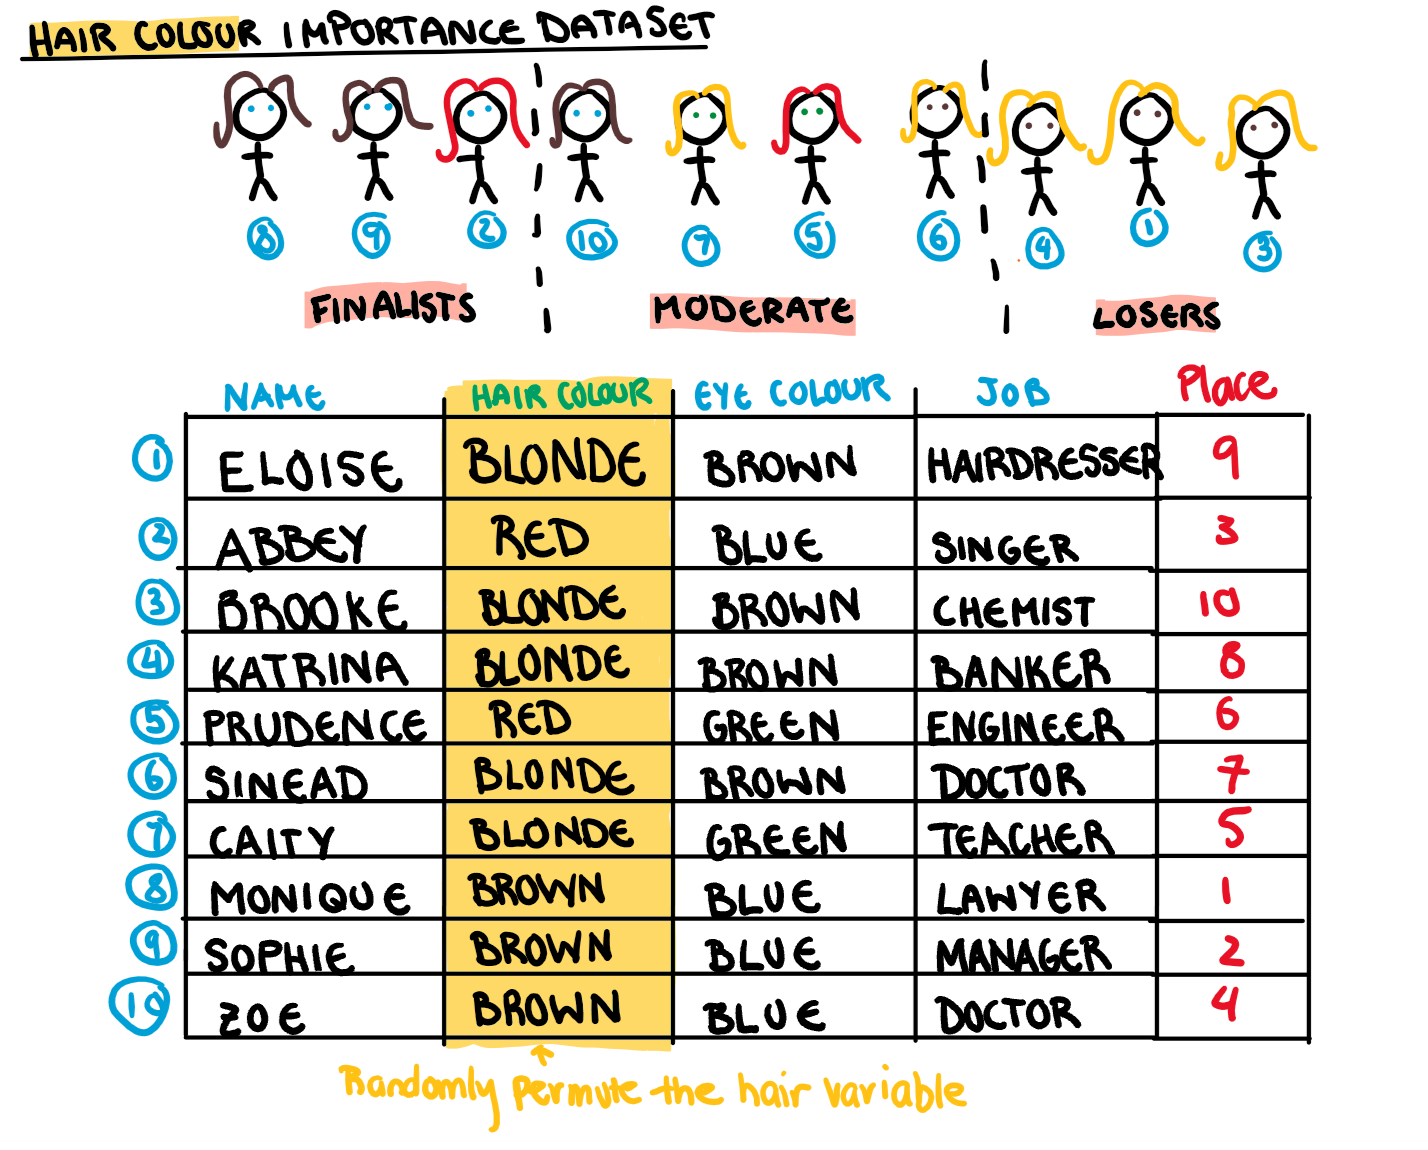 HAIR COLOUR IMPORTANCE DATASET
8 9 2 10 7 5 6 4 1 3
FINALISTS MODERATE LOSERS
NAME HAIR COLOUR EYE COLOUR JOB Place
1 ELOISE BLONDE BROWN HAIRDRESSER 9
2 ABBEY RED BLUE SINGER 3
3 BROOKE BLONDE BROWN CHEMIST 10
4 KATRINA BLONDE BROWN BANKER 8
5 PRUDENCE RED GREEN ENGINEER 6
6 SINEAD BLONDE BROWN DOCTOR 7
7 CAITY BLONDE GREEN TEACHER 5
8 MONIQUE BROWN BLUE LAWYER 1
9 SOPHIE BROWN BLUE MANAGER 2
10 ZOE BROWN BLUE DOCTOR 4
Randomly permute the hair variable